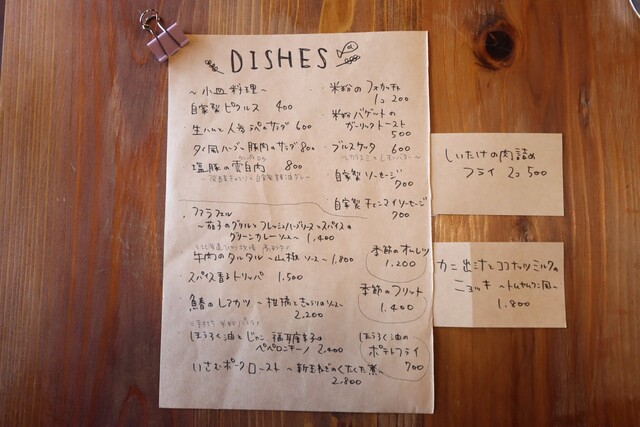 DISHES
～小皿料理～
自家製ピクルス 400
生ハムと人参ラペのサラダ 600
タイ風ハーブと豚肉のサラダ 800
塩豚の雲白肉 800
米粉のフォカッチャ
1コ 200
米粉バゲットの
ガーリックトースト
500
ブルスケッタ 600
自家製ソーセージ
700
自家製チェンマイソーセージ
900
ファラフェル
～茄子のグリルとフレッシュハーブソースとスパイスの
グリーンカレーソース～ 1,400
牛肉のタルタル ～山椒ソース～ 1,800
スパイス香るトリッパ 1,500
鰆のレアカツ ～柑橘ときゅうりのソース～
2,200
ほうろく油とじゃこ
ペペロンチーノ 2,400
いさむポークロースト ～新玉ねぎのくたくた煮～
2,800
季節のオムレツ
1,200
季節のフリット
1,400
ほうろく油の
ポテトフライ
700
しいたけの肉詰め
フライ 2コ 500
カニ出汁とココナッツミルクの
ニョッキ ～トムヤムクン風～
1,800